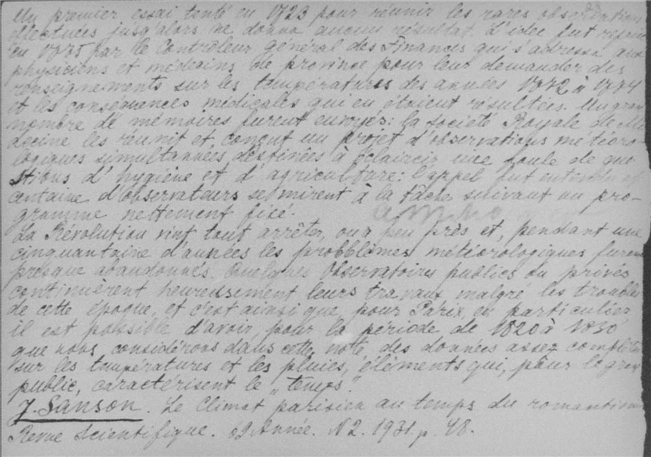 Un premier essai tenté en 1723 pour réunir les rares observations
effectuées jusqu'alors ne donna aucun résultat. L'idée fut reprise
en 1775 par le Contrôleur général des Finances qui s'adressa aux
physiciens et médecins de province pour leur demander des
renseignements sur les températures des années 1772 à 1774
et les conséquences médicales qui en étaient résultées. Un grand
nombre de mémoires furent envoyés: la société Royale de Mé-
decine les réunit et conçut un projet d'observations météoro-
logiques simultannées destinées à éclaircir une foule de que
stions d'hygiène et d'agriculture: l'appel fut entendu et
centaine d'observateurs se mirent à la tâche suivant un pro-
gramme nettement fixé.
La Révolution vint tout arrêter, ou à peu près et, pendant une
cinquantaine d'années les probblèmes météorologiques furent
presque abandonnés. Quelques Observatoires publics ou privés
continuèrent heureusement leurs travaux malgré les troubles
de cette époque, et c'est ainsi que pour Paris, en particulier,
il est possible d'avoir, pour la période de 1820 à 1830
que nous considérons dans cette note, des données assez complètes
sur les températures et les pluies, éléments que, pour le grand
public, caractérisent le „temps".
J. Sanson. Le Climat parisien au temps du romantisme
Revue Scientifique. 69 Année. N2. 1931, p. 48.